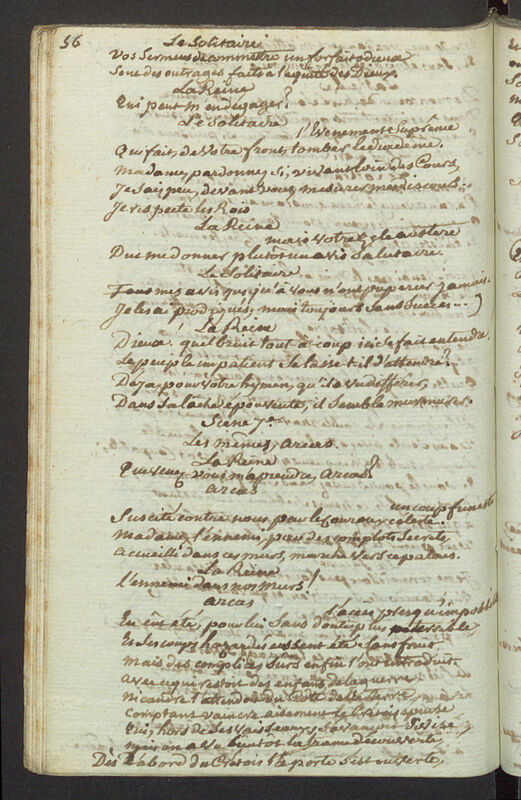 56
Le Solitaire
Vos Sermens de commettre un forfait odieux
Sont des outrages faits a l'equité des Dieux.
La Reine
Qui peut m'en degager?
Le Solitaire
l'Evenement Suprême
Qui fait, de votre front, tomber le diademe.
Madame, pardonnez, si, vivant loin des Cours,
Je Sais peu, devant vous, mesurer mes discours.
Je respecte les Rois
La Reine
mais votre zele austere
Dut me donner plutôt un avis Salutaire.
Le Solitaire
Tous mes avis jusqu'à vous n'ont pu percer jamais.
Je les ai prodigués, mais toujours Sans Succès...
La Reine
Dieux! quel bruit tout à coup ici se fait entendre
Le peuple impatient Se lasse-t-il d'attendre?
Deja, pour votre hymen, qu'il a vu differer,
Dans Sa lache épouvente, il Semble murmurer.
Scene 7e
Les mêmes, Arcas.
La Reine
Que venez vous m'aprendre, Arcas?
Arcas
un coup funeste
Suscité contre nous par le couroux céleste.
Madame, l'ennemi, par des complots Secrets
Accueilli dans ces murs, marche vers ce palais.
La Reine
l'ennemi dans nos murs!
Arcas
l'accès presqu'impossible
En eut été, pour lui Sans doute plus
Et Ses coups hazardés eussent été Sans fruit
Mais des complices Surs enfin l'ont introduit.
Avec ce qui restoit des enfans de la guerre
Nicandre l'attendoit du coté de la terre
Comptant vaincre aisement le Cretois epuisé
Qui, hors de Ses Vaisseaux,
Mais on a vu bientôt la trame découverte,
Dès l'abord du Cretois la porte S'est ouverte,